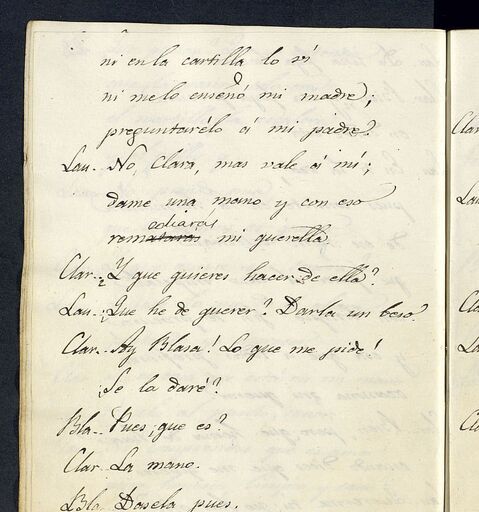 ni en la cartilla lo ví
ni me lo enseñó mi madre;
preguntarélo á mi padre.
Lau. No, Clara, mas vale á mí;
dame una mano y con eso
ediarás
rematarás mi querella.
Clar. ¿Y que quieres hacer de ella?
Lau. ¿Que he de querer? Darla un beso.
Clar. Ay Blasa! Lo que me pide!
¿Se la daré?
Bla. Pues, que es?
Clar. La mano.
Bla. Dasela pues.
Clar
Lau
Cla
La
Cl